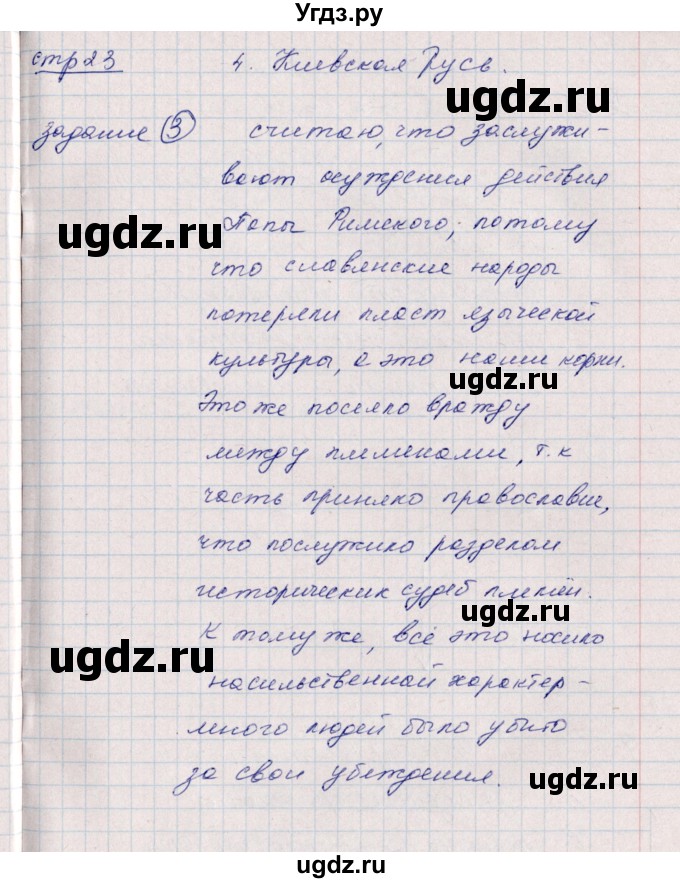 Угдз.ру
стр23 4. Киевская Русь.
ugdz.ru
задание ③ считаю, что заслужи-
вают осуждения действия
ugdz.ru
Папы Римского, потому
что славянские народы
потеряли пласт языческой
культуры, а это наши корни.
ugdz.ru
Это же посеяло вражду
между племенами, т.к
часть приняло православие,
что послужило разделом
исторических судеб племён.
ugdz.ru
К тому же, всё это носило
ugdz.ru
насильственный характер -
много людей было убито
за свои убеждения.
ugdz.ru
ugdz.ru